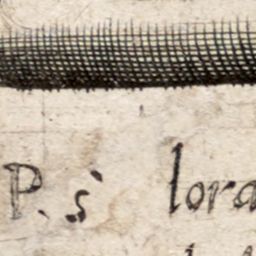 P. s lora